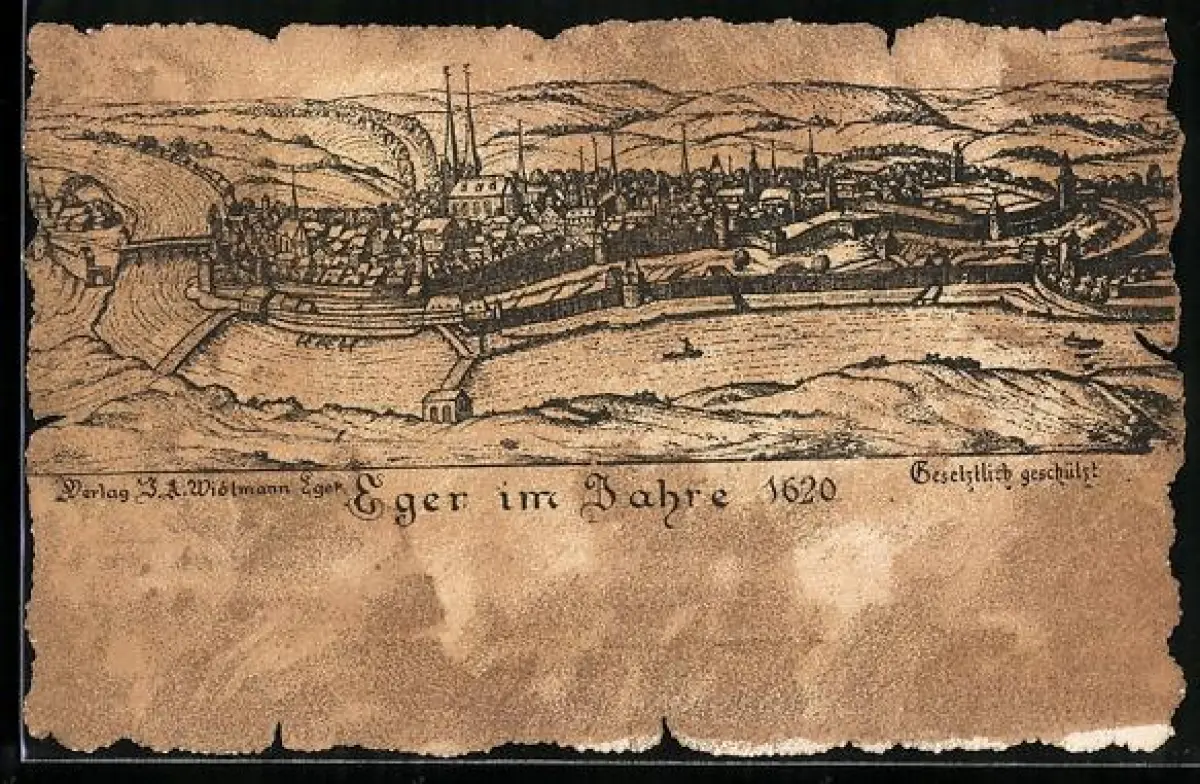 Verlag J. A. Widtmann Eger.
Eger im Jahre 1620
Gesetzlich geschützt